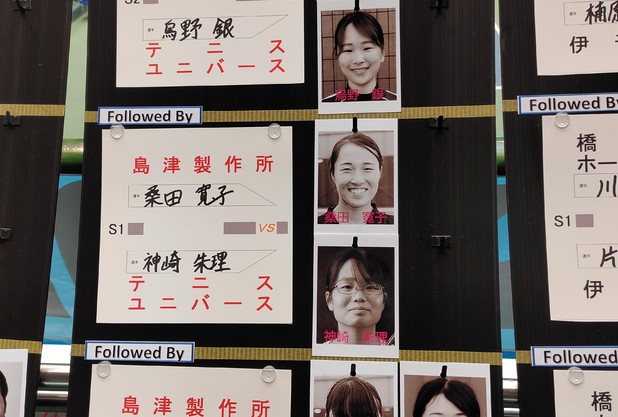 S2
選手 烏野 銀
テニス
ユニバース
烏野 銀
Followed By
島津製作所
選手 桑田 寛子
S1
VS
選手 神崎 朱理
テニス
ユニバース
桑田 寛子
神崎 朱理
Followed By
島津製作所
伊
Followed By
橋
ホー
選手 川
S1
選手 片
伊
Followed By
橋